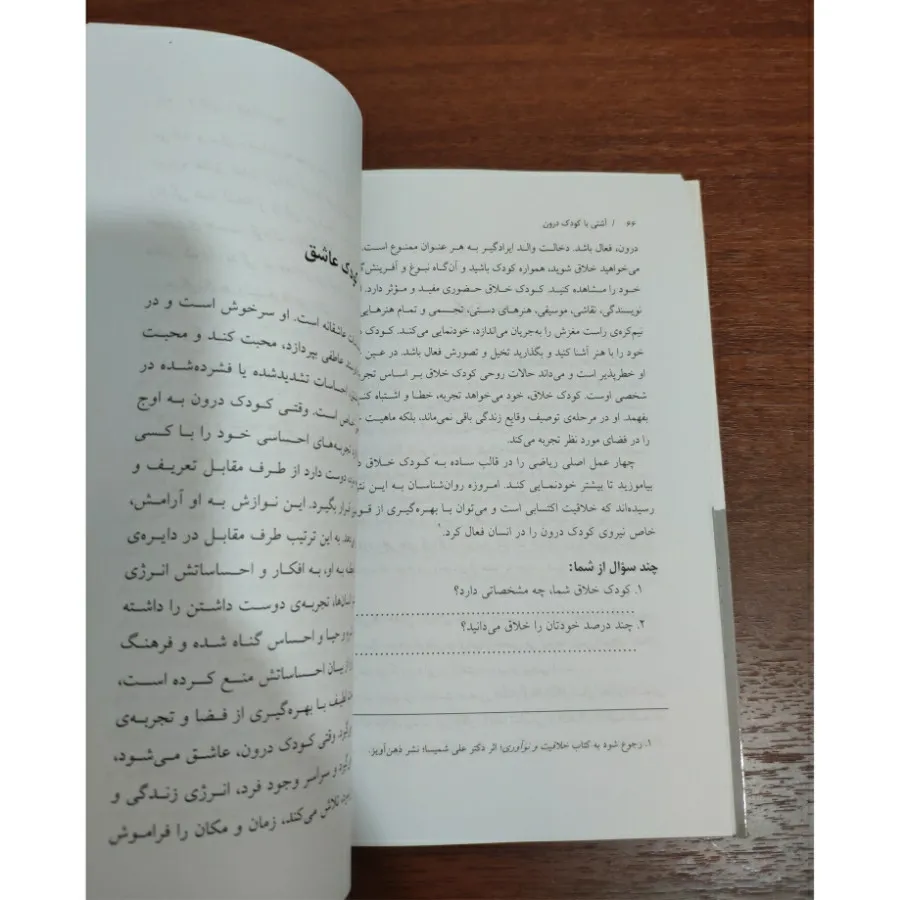 ۶۶ / آشتی با کودک درون
درون، فعال باشد. دخالت والد ایرادگیر به هر عنوان ممنوع است.
می‌خواهید خلاق شوید، همواره کودک باشید و آن‌گاه نبوغ و آفرینش
خود را مشاهده کنید. کودک خلاق حضوری مفید و مؤثر دارد.
نویسندگی، نقاشی، موسیقی، هنرهای دستی، تجسمی و تمام هنرهایی
نیم‌کره‌ی راست مغزش را به‌جریان می‌اندازد، خودنمایی می‌کند. کودک
خود را با هنر آشنا کنید و بگذارید تخیل و تصورش فعال باشد. در عین
او خطرپذیر است و می‌داند حالات روحی کودک خلاق بر اساس
شخصی اوست. کودک خلاق، خود می‌خواهد تجربه، خطا و اشتباه
بفهمد. او در مرحله‌ی توصیف وقایع زندگی باقی نمی‌ماند، بلکه ماهیت
را در فضای مورد نظر تجربه می‌کند.
چهار عمل اصلی ریاضی را در قالب ساده به کودک خلاق
بیاموزید تا بیشتر خودنمایی کند. امروزه روان‌شناسان به این
رسیده‌اند که خلاقیت اکتسابی است و می‌توان با بهره‌گیری از
خاص نیروی کودک درون را در انسان فعال کرد.۱
چند سؤال از شما:
۱. کودک خلاق شما، چه مشخصاتی دارد؟
۲. چند درصد خودتان را خلاق می‌دانید؟
۱. رجوع شود به کتاب خلاقیت و نوآوری؛ اثر دکتر علی شمیسا؛ نشر ذهن‌آویز.
عاشق
عاشقانه است. او سرخوش است و در
عاطفی بپردازد، محبت کند و محبت
احساسات تشدیدشده یا فشرده‌شده در
است. وقتی کودک درون به اوج
تجربه‌های احساسی خود را با کسی
دوست دارد از طرف مقابل تعریف و
قرار بگیرد. این نوازش به او آرامش،
به این ترتیب طرف مقابل در دایره‌ی
به او، به افکار و احساساتش انرژی
تجربه‌ی دوست داشتن را داشته
و حیا و احساس گناه شده و فرهنگ
از بیان احساساتش منع کرده است،
لطیف با بهره‌گیری از فضا و تجربه‌ی
وقتی کودک درون، عاشق می‌شود،
و سراسر وجود فرد، انرژی زندگی و
تلاش می‌کند، زمان و مکان را فراموش